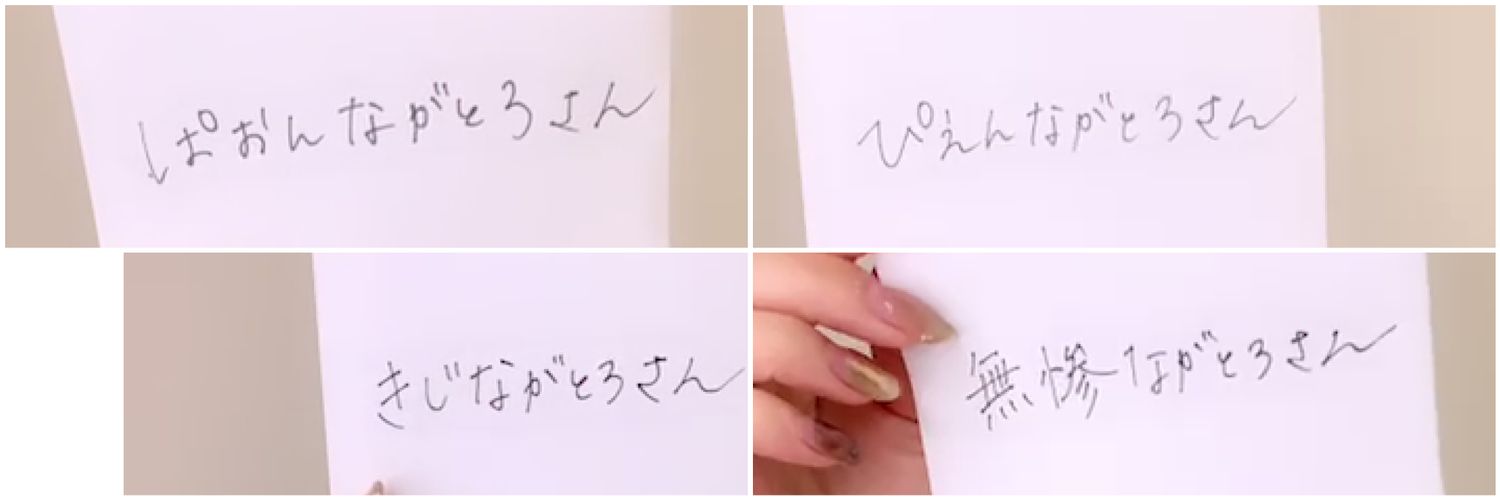 ぱおんながとろさん
ぴえんながとろさん
きじながとろさん
無惨ながとろさん